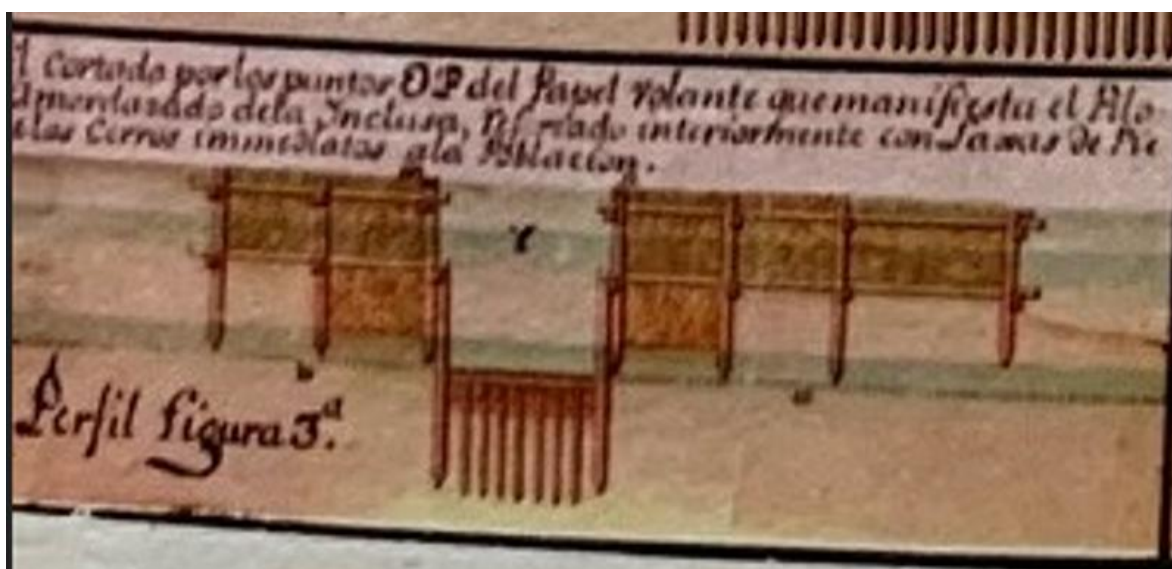 l Cortado por los puntos OP del Papel volante que manifiesta el Pilo
Amordazado dela Inclusa, interiormente con Laxas de Pie
elas Cerros immediatos ala Poblacion.
r
b
a
Perfil figura 3.ª